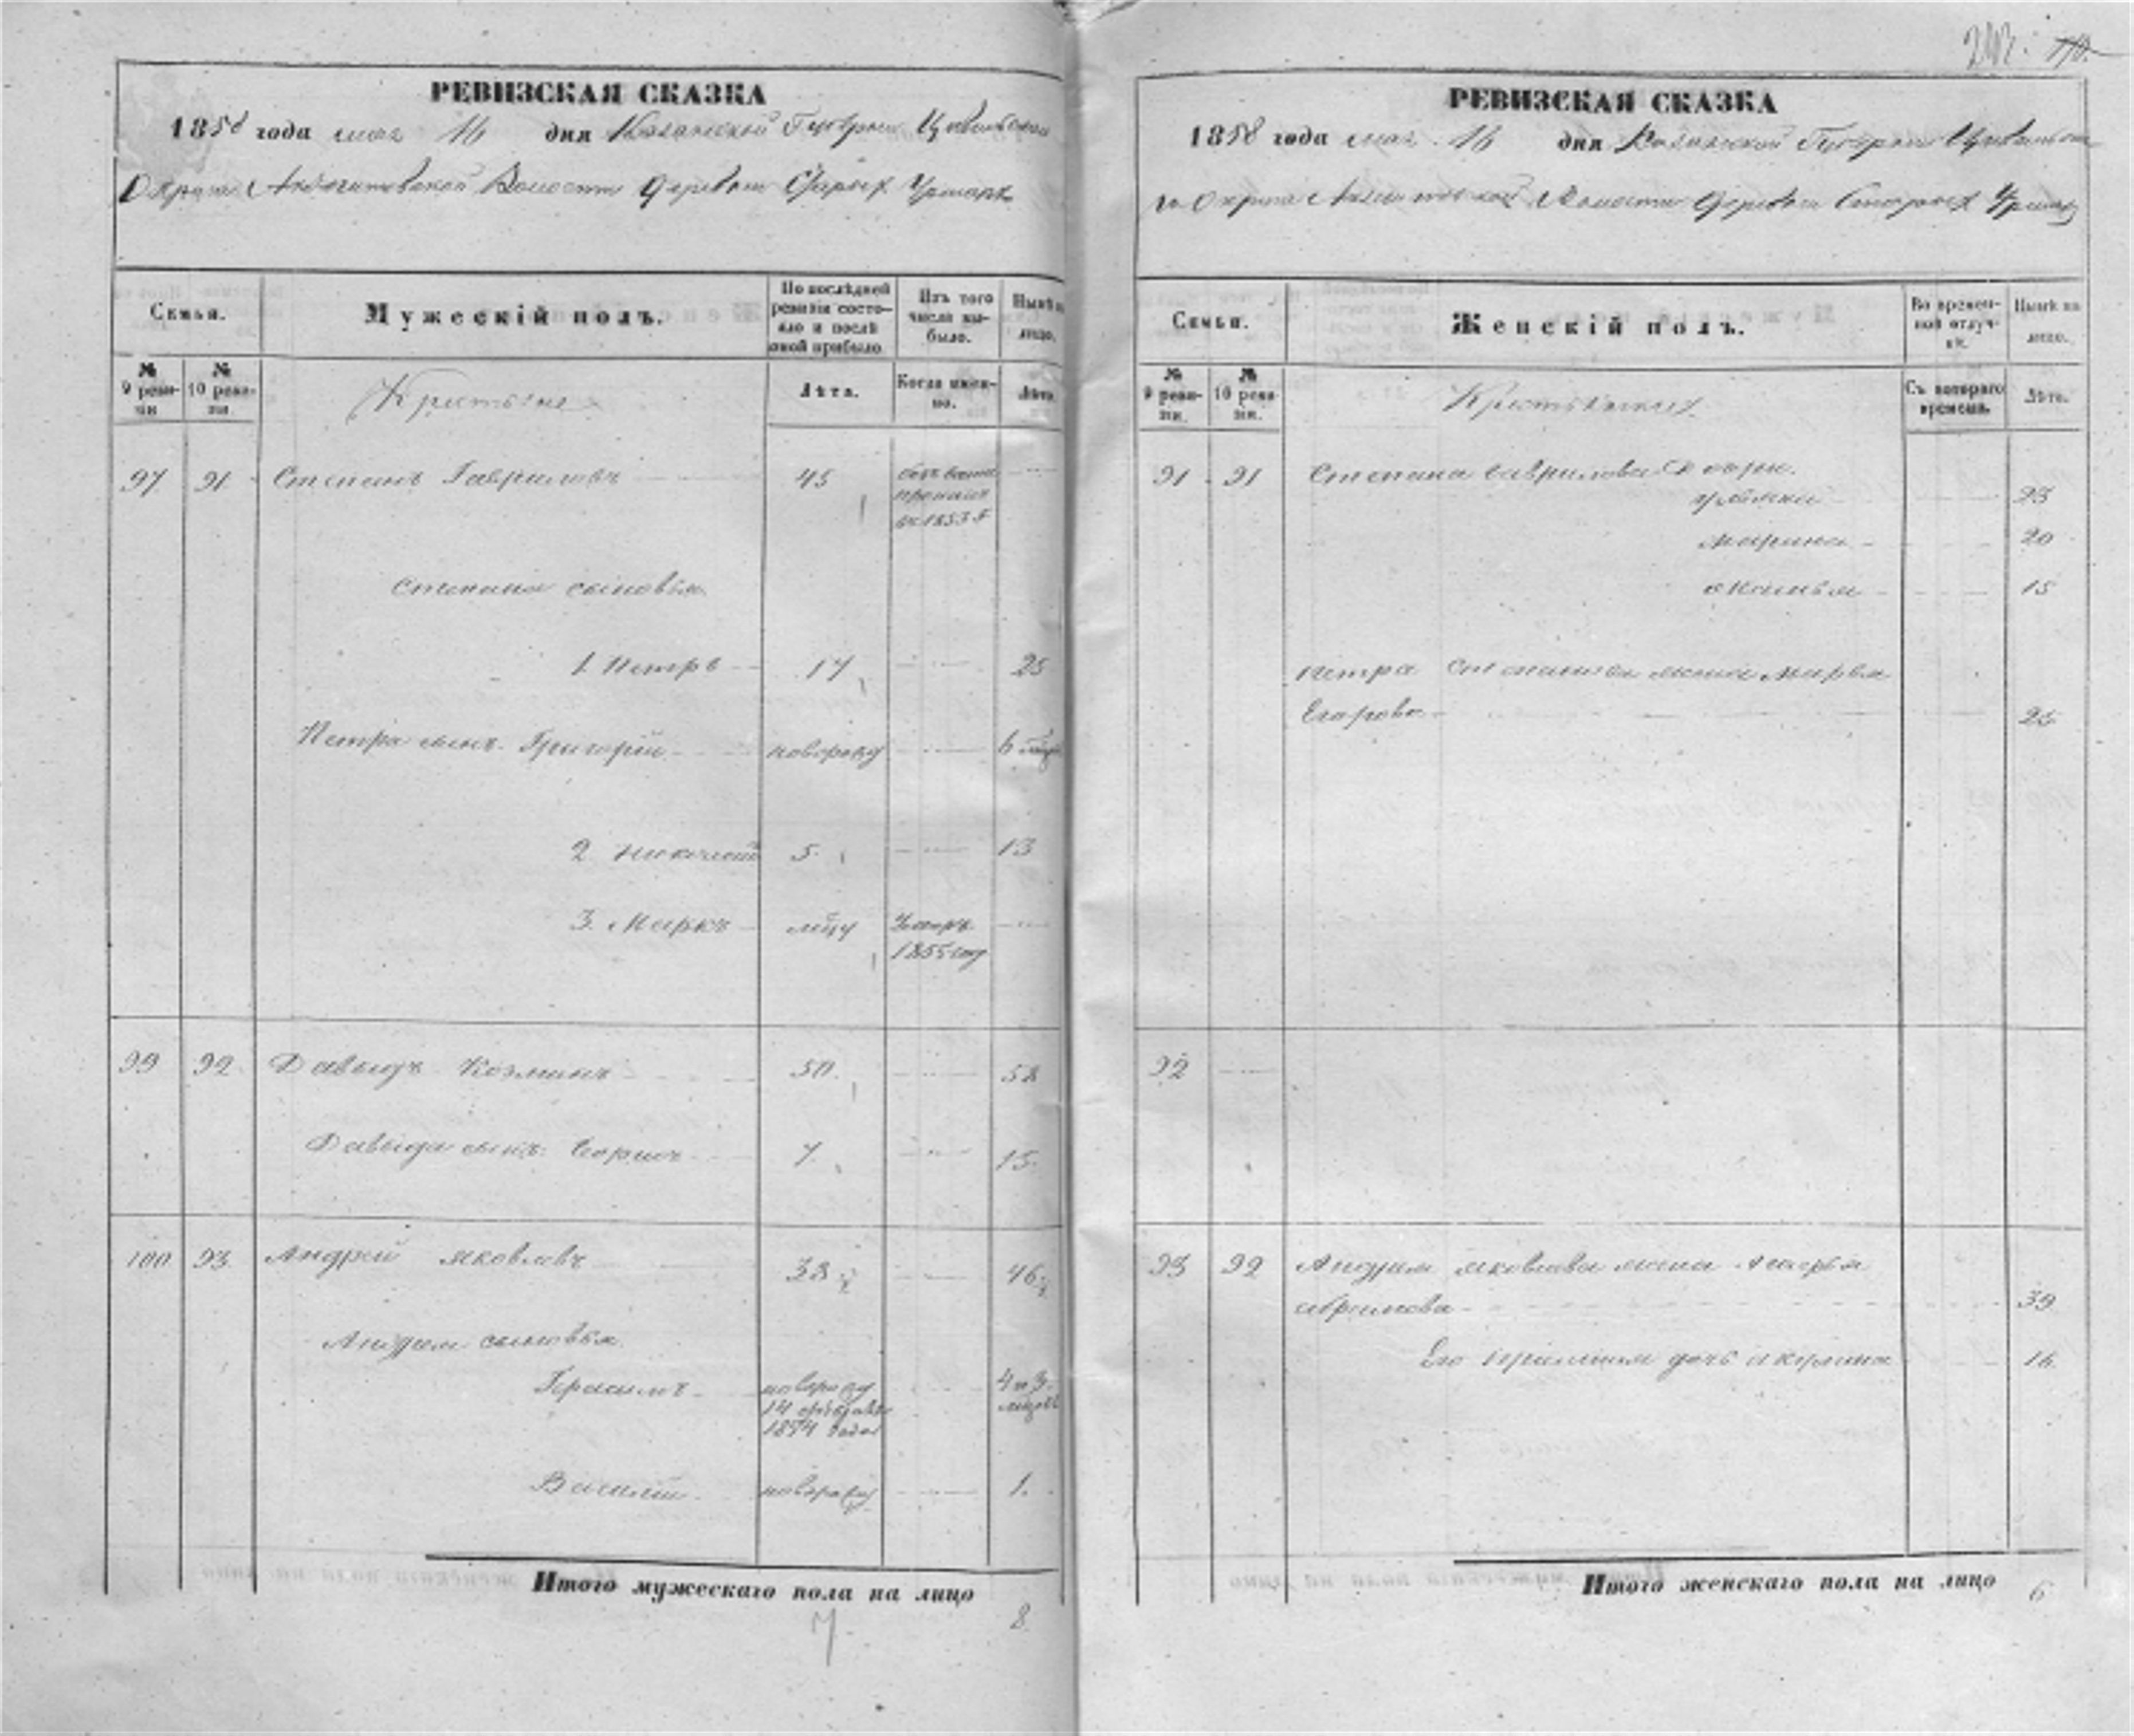 РЕВИЗСКАЯ СКАЗКА
1858 года мая 16 дня Казанской Губернии Цивильскаго
Округа Волости Деревни Старых Урмаръ
Семьи.
Мужескій полъ.
По послѣдней ревизіи состояло и послѣ оной прибыло
Изъ того числа выбыло.
Нынѣ на лицо.
№ 9 ревизіи
№ 10 ревизіи.
Крестьяне
Лѣта.
Когда именно.
Лѣта.
97 91 Степанъ Гавриловъ 45
пропалъ
въ 1853 г
Степана сыновья
1. Петръ 17 25
Петра сынъ Григорій новорожд 6
2. Николай 5 13
3. Маркъ Умеръ
1855 году
99 92 Давыдъ Козминъ 50 58
Давыда сынъ 7 15
100 93 Андрей Яковлевъ 38 46
Андрея сыновья
Герасимъ новорожд 4 и 3
14 февраля месяц
1854 года
Василій новорожд 1.
Итого мужескаго пола на лицо 8
7
242
РЕВИЗСКАЯ СКАЗКА
1858 года мая 16 дня Казанской Губерніи Цивильска
го Округа Волости Деревни Старых Урмаръ
Семьи.
Женскій полъ.
Во временной отлучкѣ.
Нынѣ на лицо.
№ 9 ревизіи.
№ 10 ревизіи.
Крестьянских
Съ котораго времени.
Лѣта.
91 91 Степана Гаврилова дочери
23
Марина 20
15
Петра Степанова жена Марья
Егорова 25
92
93 92 Андрея Яковлева жена
39
Его дочь Акулина 16
Итого женскаго пола на лицо 6